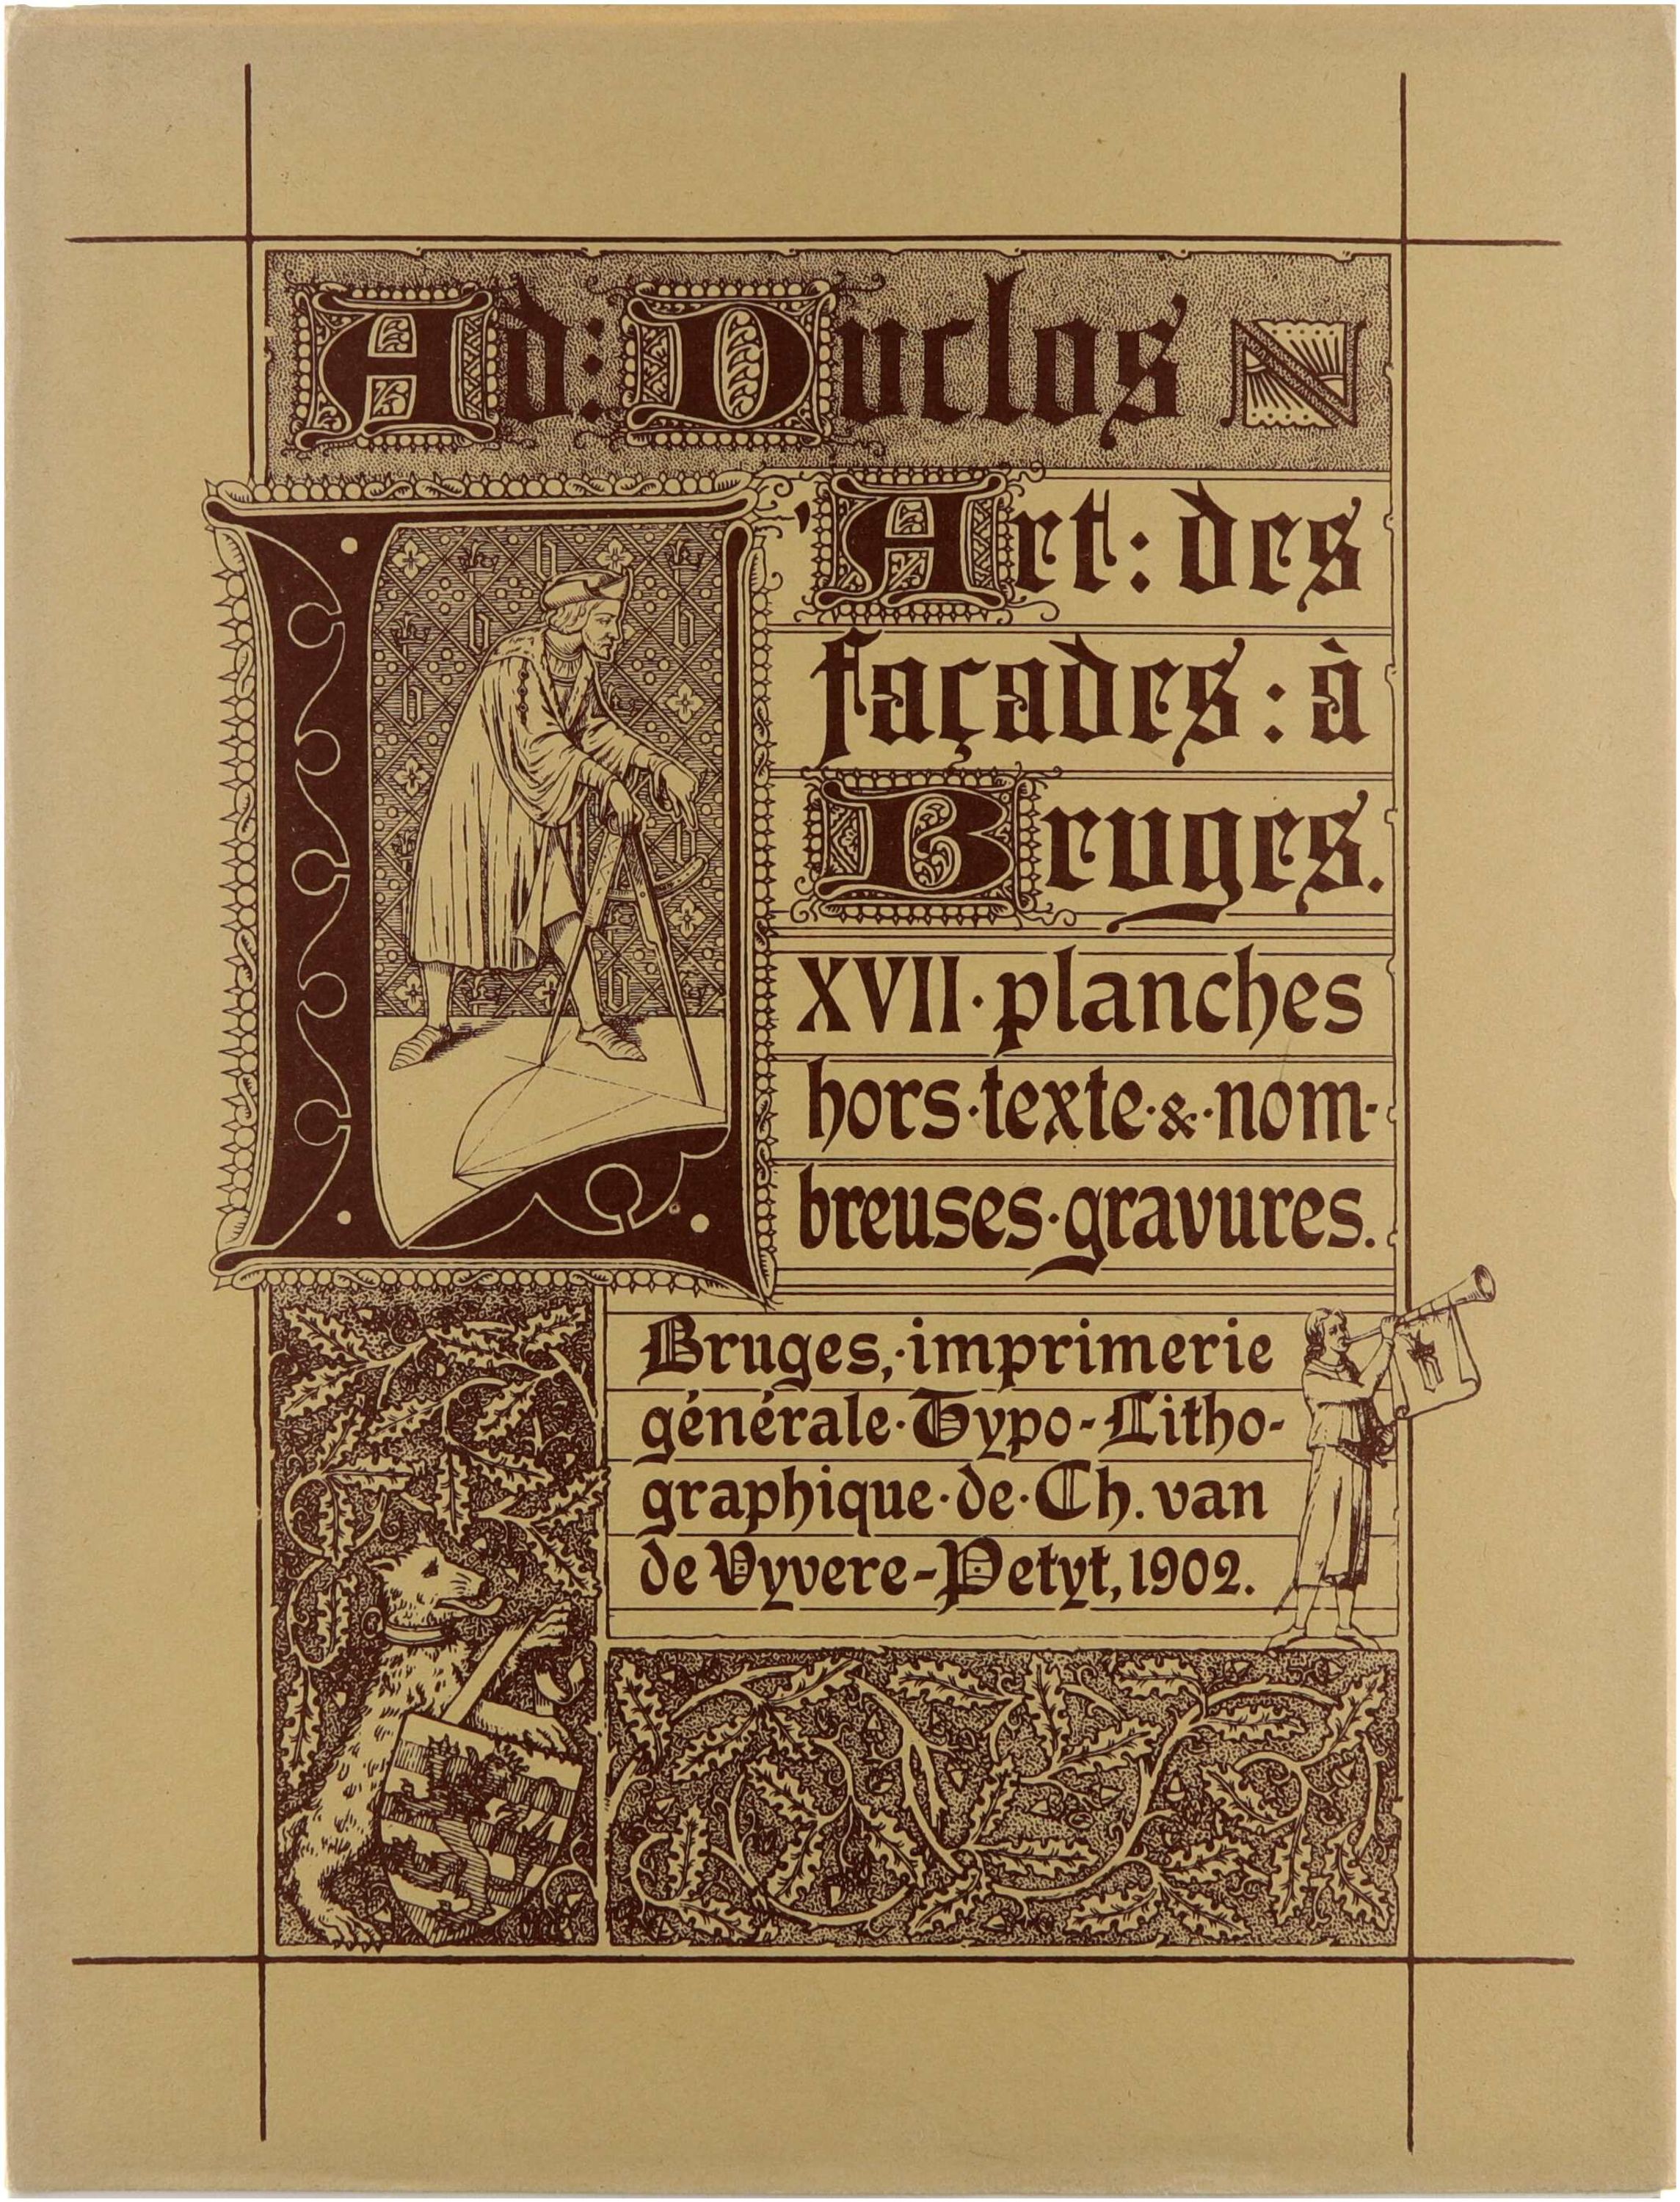 Ad: Duclos
L'Art: des
façades: à
Bruges.
XVII·planches
hors·texte·&·nom-
breuses·gravures.
Bruges,·imprimerie
générale·Typo-Litho-
graphique·de·Ch. van
de Vyvere-Petyt, 1902.